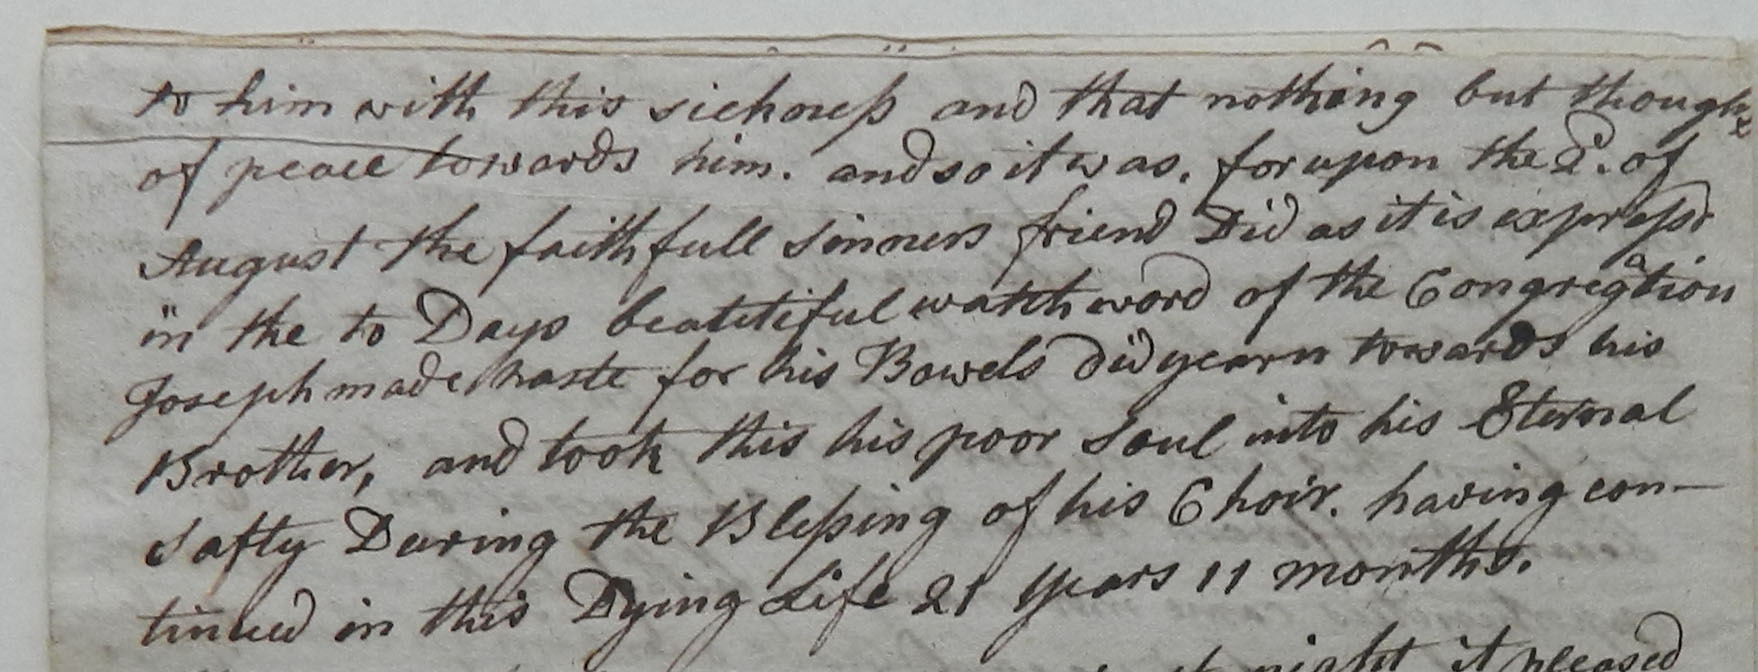 to him with this sickness and that nothing but thoughts
of peace towards him. and so it was. for upon the 2d. of
August the faithfull Sinners friend Did as it is expressd
in the to Days beatitiful watch word of the Congregation
Joseph made haste for his Bowels did yearn towards his
Brother, and took this his poor Soul into his Eternal
Safty During the Blessing of his Choir. having con-
tinued in this Dying Life 21 Years 11 months.
night it pleased